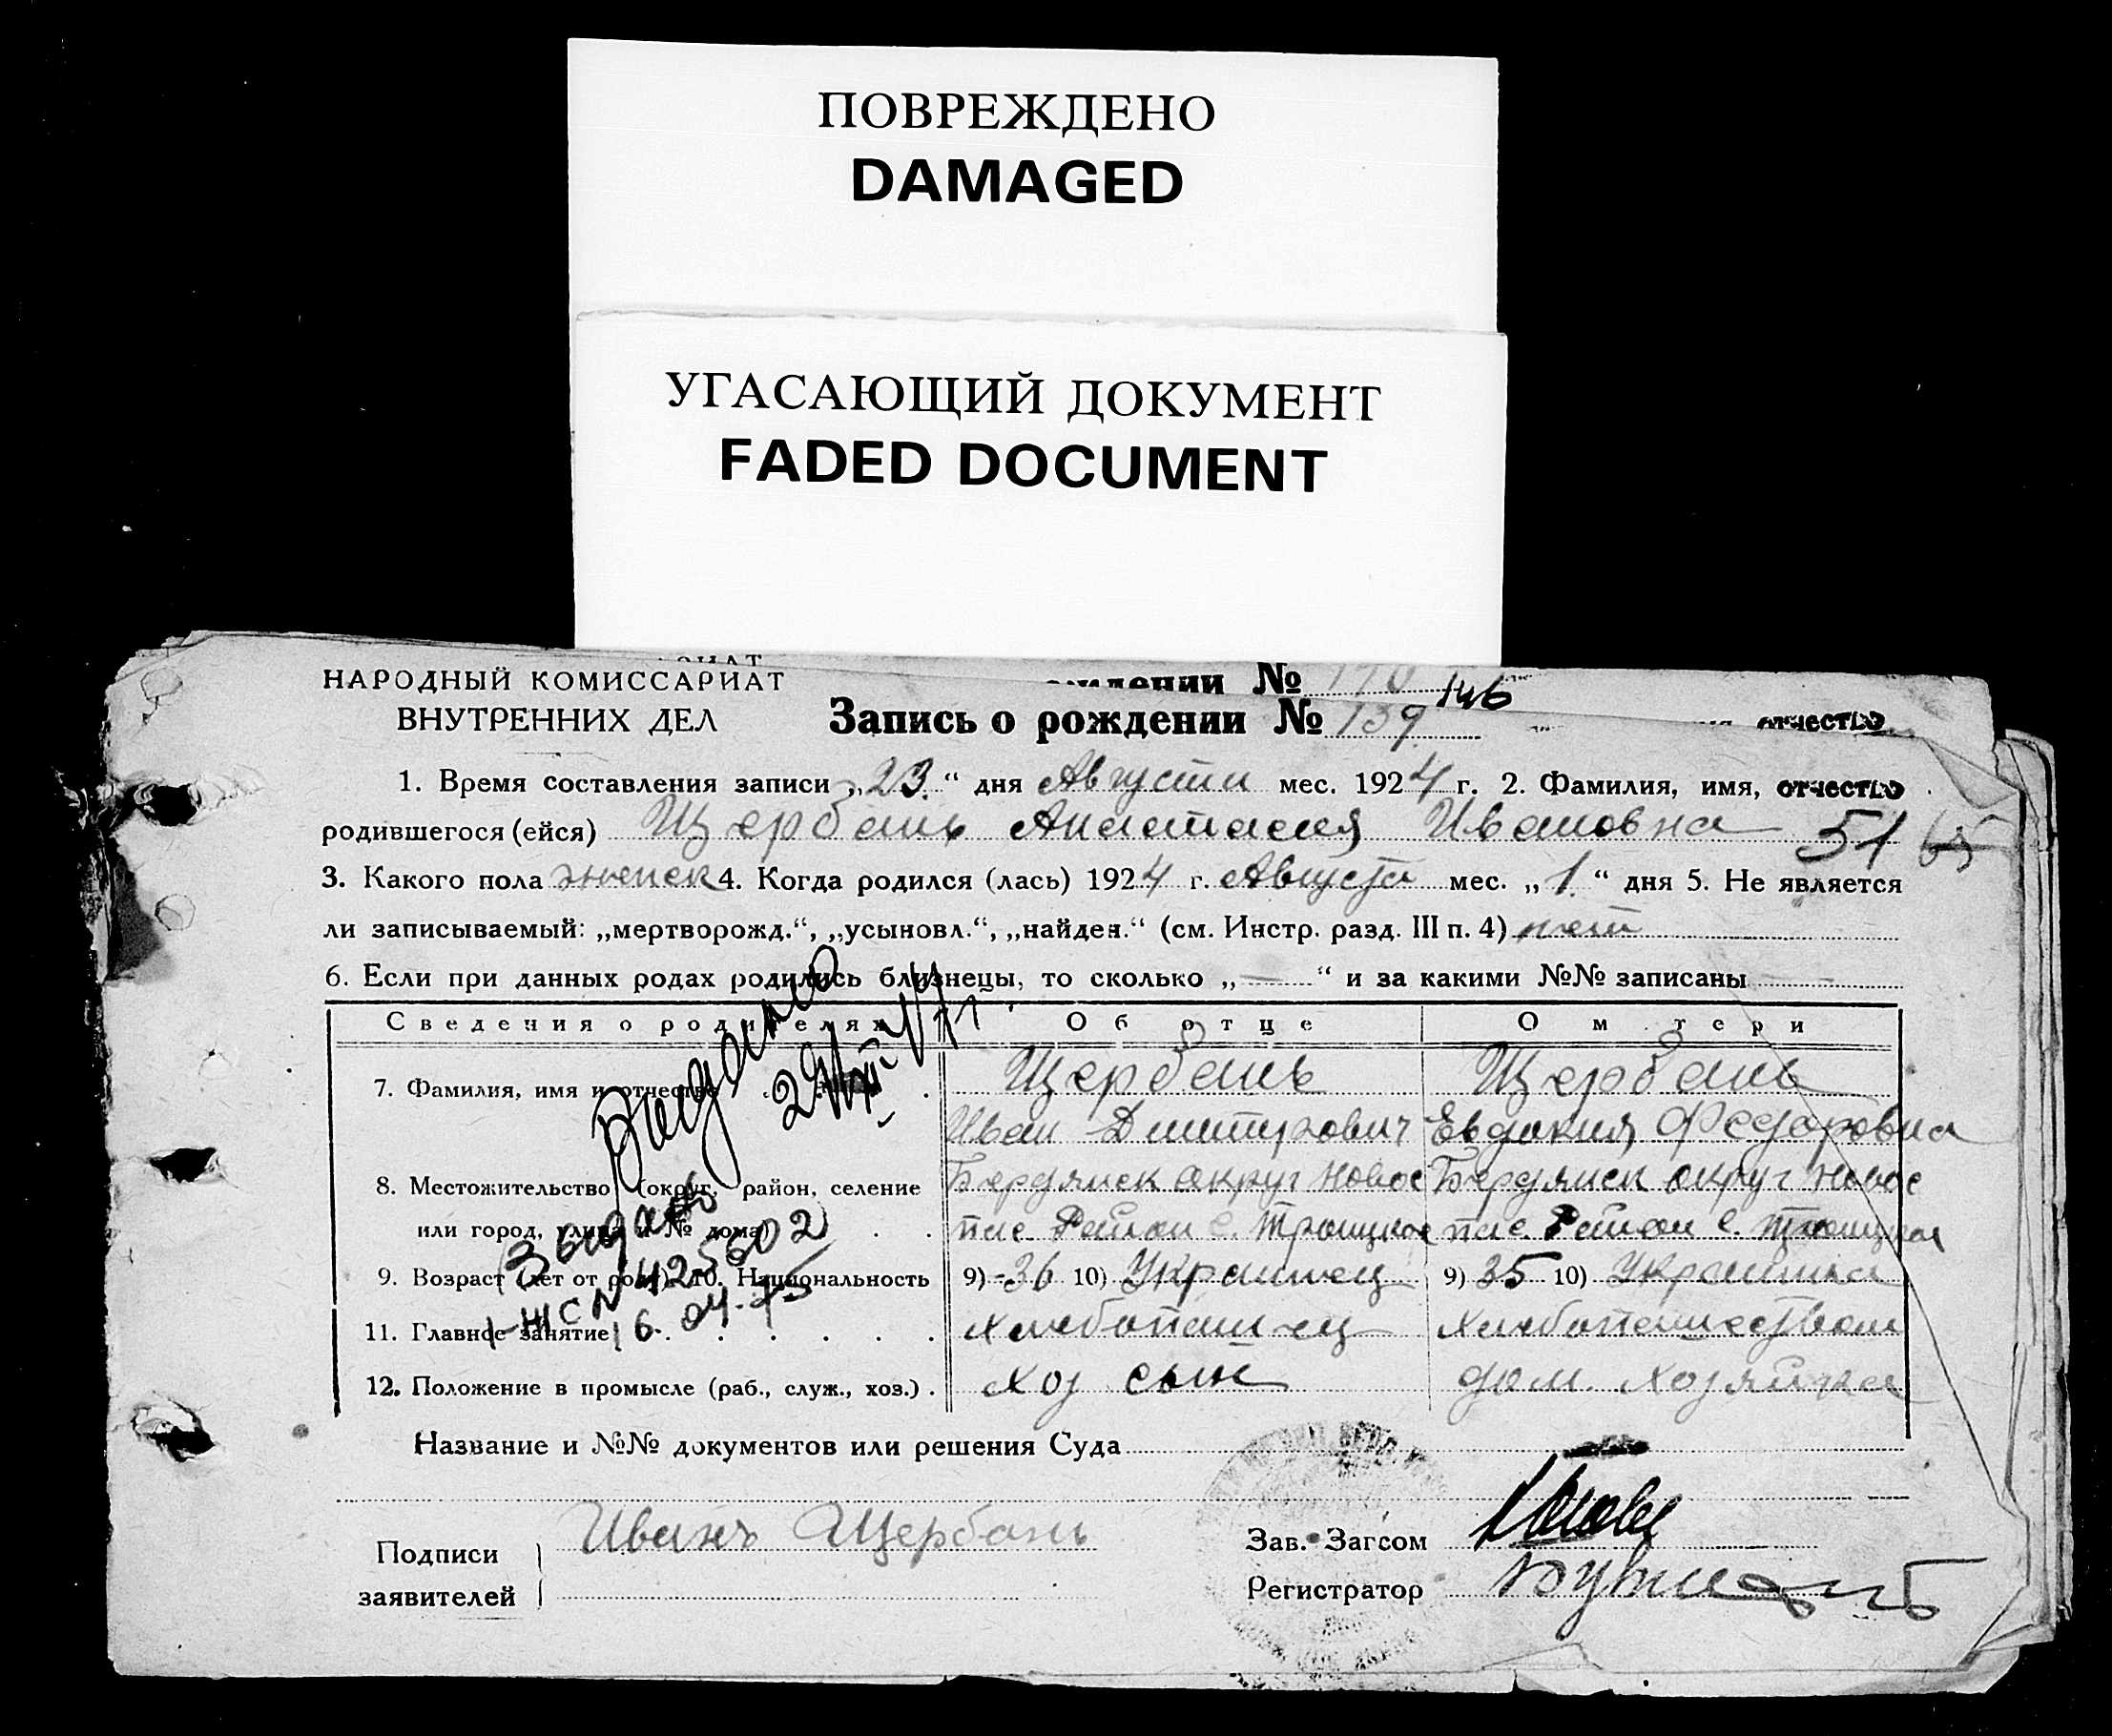 ПОВРЕЖДЕНО
DAMAGED
УГАСАЮЩИЙ ДОКУМЕНТ
FADED DOCUMENT
НАРОДНЫЙ КОМИССАРИАТ
ВНУТРЕННИХ ДЕЛ
Запись о рождении № 139 146
1. Время составления записи „23“ дня Августа мес. 1924 г. 2. Фамилия, имя, отчество
родившегося (ейся) Щербань Анастасия Ивановна 51 65
3. Какого пола женск 4. Когда родился (лась) 1924 г. Августа мес. „1“ дня 5. Не является
ли записываемый: „мертворожд.“, „усыновл.“, „найден.“ (см. Инстр. разд. III п. 4) нет
6. Если при данных родах родились близнецы, то сколько „—“ и за какими №№ записаны —
Сведения о родителях Об отце О матери
7. Фамилия, имя и отчество Щербань Щербань
Иван Дмитрович Евдокия Федоровна
8. Местожительство (округ, район, селение Бердянск округ Новос Бердянск округ Новос
или город, улица и № дома) пас Район с. Троицкое пас Район с. Троицкое
9. Возраст (лет от роду) 10. Национальность 9) 36 10) Украинец 9) 35 10) Украинка
11. Главное занятие хлебопашец хлебопашеством
12. Положение в промысле (раб., служ., хоз.) Хоз сын дом. хозяйка
Выдано
Выдано
I-ЖС № 425602
16.04.75
Название и №№ документов или решения Суда
Подписи Иванъ Щербань
заявителей
Зав. Загсом
Регистратор